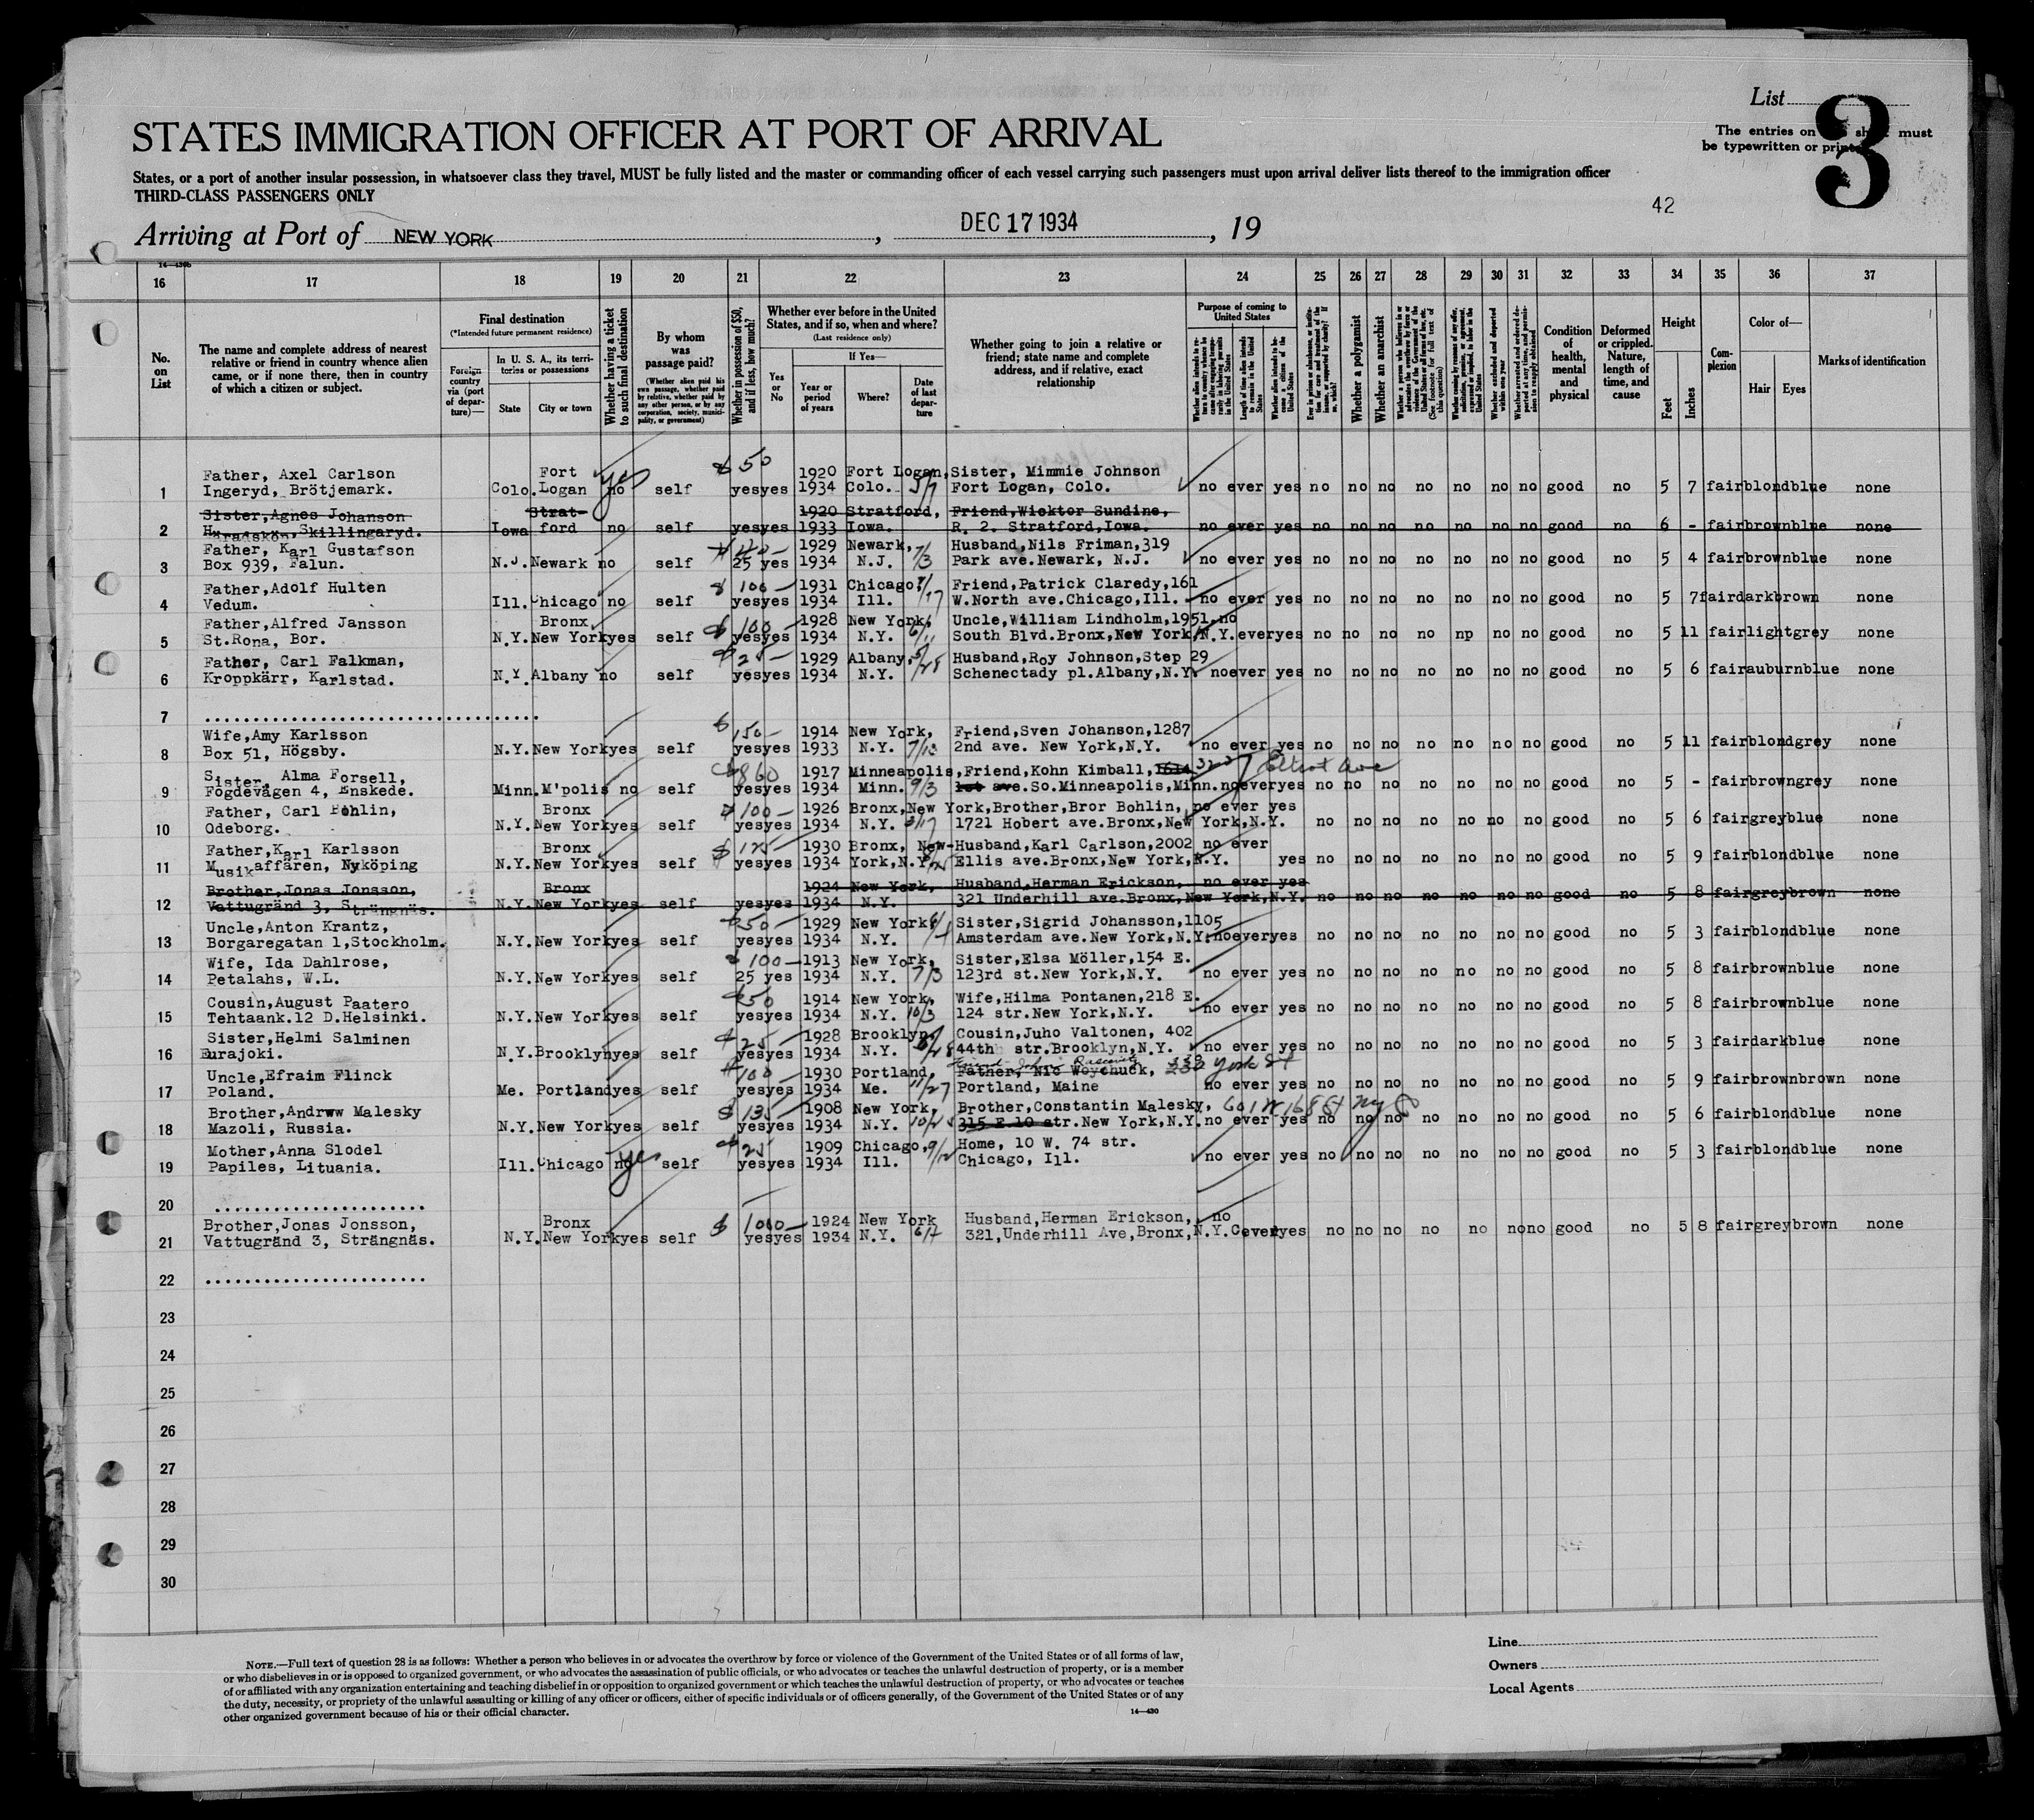 List
3
The entries on sh must
be typewritten or print
STATES IMMIGRATION OFFICER AT PORT OF ARRIVAL
States, or a port of another insular possession, in whatsoever class they travel, MUST be fully listed and the master or commanding officer of each vessel carrying such passengers must upon arrival deliver lists thereof to the immigration officer
THIRD-CLASS PASSENGERS ONLY
42
Arriving at Port of NEW YORK, DEC 17 1934, 19
14—430b
16 17 18 19 20 21 22 23 24 25 26 27 28 29 30 31 32 33 34 35 36 37
No. on List
The name and complete address of nearest relative or friend in country whence alien came, or if none there, then in country of which a citizen or subject.
Final destination
(*Intended future permanent residence)
Foreign country via (port of departure)—
In U. S. A., its territories or possessions
State
City or town
Whether having a ticket to such final destination
By whom was passage paid?
(Whether alien paid his own passage, whether paid by relative, whether paid by any other person, or by any corporation, society, municipality, or government)
Whether in possession of $50, and if less, how much?
Whether ever before in the United States, and if so, when and where?
(Last residence only)
Yes or No
If Yes—
Year or period of years
Where?
Date of last departure
Whether going to join a relative or friend; state name and complete address, and if relative, exact relationship
Purpose of coming to United States
Length of time alien intends to remain in the United States
Whether alien intends to become a citizen of the United States
Whether a polygamist
Whether an anarchist
Whether excluded and deported within one year
Condition of health, mental and physical
Deformed or crippled. Nature, length of time, and cause
Height
Feet
Inches
Complexion
Color of—
Hair
Eyes
Marks of identification
Father, Axel Carlson Fort yes $50 1920 Fort Logan, Sister, Mimmie Johnson
1 Ingeryd, Brötjemark. Colo. Logan no self yes yes 1934 Colo. 5/7 Fort Logan, Colo. no ever yes no no no no no no no good no 5 7 fair blond blue none
Sister, Agnes Johanson Strat- 1920 Stratford, Friend, Wicktor Sundine,
2 Skillingaryd. Iowa ford no self yes yes 1933 Iowa. R. 2. Stratford, Iowa. no ever yes no no no no no no no good no 6 - fair brown blue none
Father, Karl Gustafson 1929 Newark, 7/3 Husband, Nils Friman, 319
3 Box 939, Falun. N.J. Newark no self 25 yes 1934 N.J. Park ave. Newark, N.J. no ever yes no no no no no no no good no 5 4 fair brown blue none
Father, Adolf Hulten $100- 1931 Chicago Friend, Patrick Claredy, 161
4 Vedum. Ill. Chicago no self yes yes 1934 Ill. W. North ave. Chicago, Ill. no ever yes no no no no no no no good no 5 7 fair dark brown none
Father, Alfred Jansson Bronx $100- 1928 New York, 6/11 Uncle, William Lindholm, 1951. no
5 St. Rona, Bor. N.Y. New York yes self yes yes 1934 N.Y. South Blvd. Bronx, New York, N.Y. ever yes no no no no np no no good no 5 11 fair light grey none
Father, Carl Falkman, $25- 1929 Albany, Husband, Roy Johnson, Step 29
6 Kroppkärr, Karlstad. N.Y. Albany no self yes yes 1934 N.Y. Schenectady pl. Albany, N.Y. no ever yes no no no no no no no good no 5 6 fair auburn blue none
7
Wife, Amy Karlsson $150- 1914 New York, Friend, Sven Johanson, 1287
8 Box 51, Högsby. N.Y. New York yes self yes yes 1933 N.Y. 7/13 2nd ave. New York, N.Y. no ever yes no no no no no no no good no 5 11 fair blond grey none
Sister, Alma Forsell, 1917 Minneapolis, Friend, Kohn Kimball, 1614 Elliot Ave
9 Fogdevägen 4, Enskede. Minn. M'polis no self yes yes 1934 Minn. 9/3 1st ave. So. Minneapolis, Minn. no ever yes no no no no no no no good no 5 - fair brown grey none
Father, Carl Bohlin, Bronx $100- 1926 Bronx, New York, Brother, Bror Bohlin, no ever yes
10 Odeborg. N.Y. New York yes self yes yes 1934 N.Y. 1721 Hobert ave. Bronx, New York, N.Y. no no no no no no no good no 5 6 fair grey blue none
Father, Karl Karlsson Bronx $125- 1930 Bronx, New- Husband, Karl Carlson, 2002 no ever
11 Musikaffären, Nyköping N.Y. New York yes self yes yes 1934 York, N.Y. Ellis ave. Bronx, New York, N.Y. yes no no no no no no no good no 5 9 fair blond blue none
Brother, Jonas Jonsson, Bronx 1924 New York, Husband, Herman Erickson, no ever yes
12 Vattugränd 3, Strängnäs. N.Y. New York yes self yes yes 1934 N.Y. 321 Underhill ave. Bronx, New York, N.Y. no no no no no no no good no 5 8 fair grey brown none
Uncle, Anton Krantz, $50- 1929 New York Sister, Sigrid Johansson, 1105
13 Borgaregatan 1, Stockholm. N.Y. New York yes self yes yes 1934 N.Y. Amsterdam ave. New York, N.Y. no ever yes no no no no no no no good no 5 3 fair blond blue none
Wife, Ida Dahlrose, $100- 1913 New York, Sister, Elsa Möller, 154 E.
14 Petalahs, W.L. N.Y. New York yes self 25 yes 1934 N.Y. 7/3 123rd st. New York, N.Y. no ever yes no no no no no no no good no 5 8 fair brown blue none
Cousin, August Paatero $50 1914 New York, Wife, Hilma Pontanen, 218 E.
15 Tehtaank. 12 D. Helsinki. N.Y. New York yes self yes yes 1934 N.Y. 10/3 124 str. New York, N.Y. no ever yes no no no no no no no good no 5 8 fair brown blue none
Sister, Helmi Salminen $25- 1928 Brooklyn, Cousin, Juho Valtonen, 402
16 Eurajoki. N.Y. Brooklyn yes self yes yes 1934 N.Y. 44th str. Brooklyn, N.Y. no ever yes no no no no no no no good no 5 3 fair dark blue none
Uncle, Efraim Flinck $100- 1930 Portland, Father, Nic Woychuck, York St
17 Poland. Me. Portland yes self yes yes 1934 Me. 11/27 Portland, Maine no ever yes no no no no no no no good no 5 9 fair brown brown none
Brother, Andrww Malesky $135 1908 New York, Brother, Constantin Malesky, 601 W 168 St NY
18 Mazoli, Russia. N.Y. New York yes self yes yes 1934 N.Y. 315 E 10 str. New York, N.Y. no ever yes no no no no no no no good no 5 6 fair blond blue none
Mother, Anna Slodel yes $25 1909 Chicago, 9/12 Home, 10 W. 74 str.
19 Papiles, Lituania. Ill. Chicago no self yes yes 1934 Ill. Chicago, Ill. no ever yes no no no no no no no good no 5 3 fair blond blue none
20
Brother, Jonas Jonsson, Bronx $100- 1924 New York Husband, Herman Erickson, no
21 Vattugränd 3, Strängnäs. N.Y. New York yes self yes yes 1934 N.Y. 321, Underhill Ave, Bronx, N.Y. ever yes no no no no no no no good no 5 8 fair grey brown none
22
23
24
25
26
27
28
29
30
NOTE.—Full text of question 28 is as follows: Whether a person who believes in or advocates the overthrow by force or violence of the Government of the United States or of all forms of law,
or who disbelieves in or is opposed to organized government, or who advocates the assassination of public officials, or who advocates or teaches the unlawful destruction of property, or is a member
of or affiliated with any organization entertaining and teaching disbelief in or opposition to organized government or which teaches the unlawful destruction of property, or who advocates or teaches
the duty, necessity, or propriety of the unlawful assaulting or killing of any officer or officers, either of specific individuals or of officers generally, of the Government of the United States or of any
other organized government because of his or their official character.
14—430
Line
Owners
Local Agents